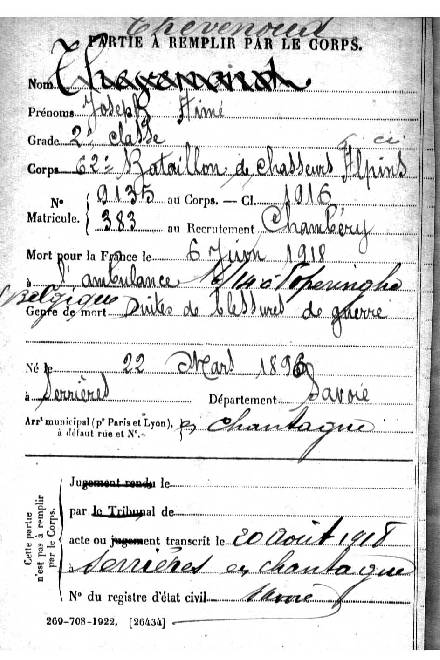 Thevenoud
PARTIE À REMPLIR PAR LE CORPS.
Nom
Prénoms Joseph Aimé
Grade 2e classe
Corps 62e Bataillon de Chasseurs Alpins
N° 9135 au Corps. — Cl. 1916
Matricule. 383 au Recrutement Chambéry
Mort pour la France le 6 Juin 1918
à l'ambulance 6/14 à Poperinghe
(Belgique)
Genre de mort Suites de blessures de guerre
Né le 22 Mars 1896
à Serrières Département Savoie
Arrt municipal (pr Paris et Lyon), à défaut rue et N°. en Chautagne
Cette partie n'est pas à remplir par le Corps.
Jugement rendu le
par le Tribunal de
acte ou jugement transcrit le 20 août 1918
à Serrières en Chautagne
N° du registre d'état civil Savoie
269-708-1922. [26434]